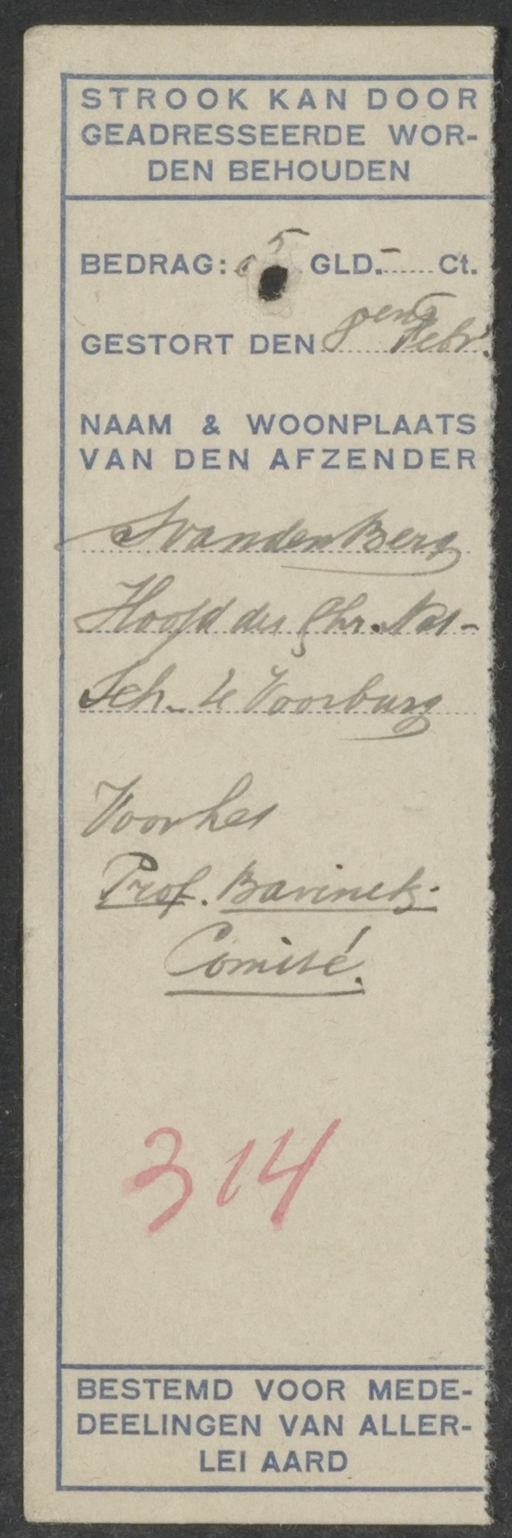 STROOK KAN DOOR
GEADRESSEERDE WOR-
DEN BEHOUDEN
BEDRAG: 5 GLD.- Ct.
GESTORT DEN Febr.
NAAM & WOONPLAATS
VAN DEN AFZENDER
van den Berg
Hoofd der Chr. Nat-
Sch. te Voorburg
Voor het
Prof. Bavinck-
Comité.
314
BESTEMD VOOR MEDE-
DEELINGEN VAN ALLER-
LEI AARD